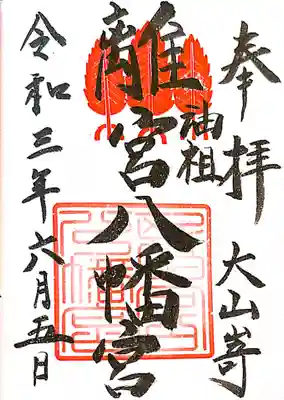 奉拝 大山崎
油祖
離宮八幡宮
令和三年六月五日